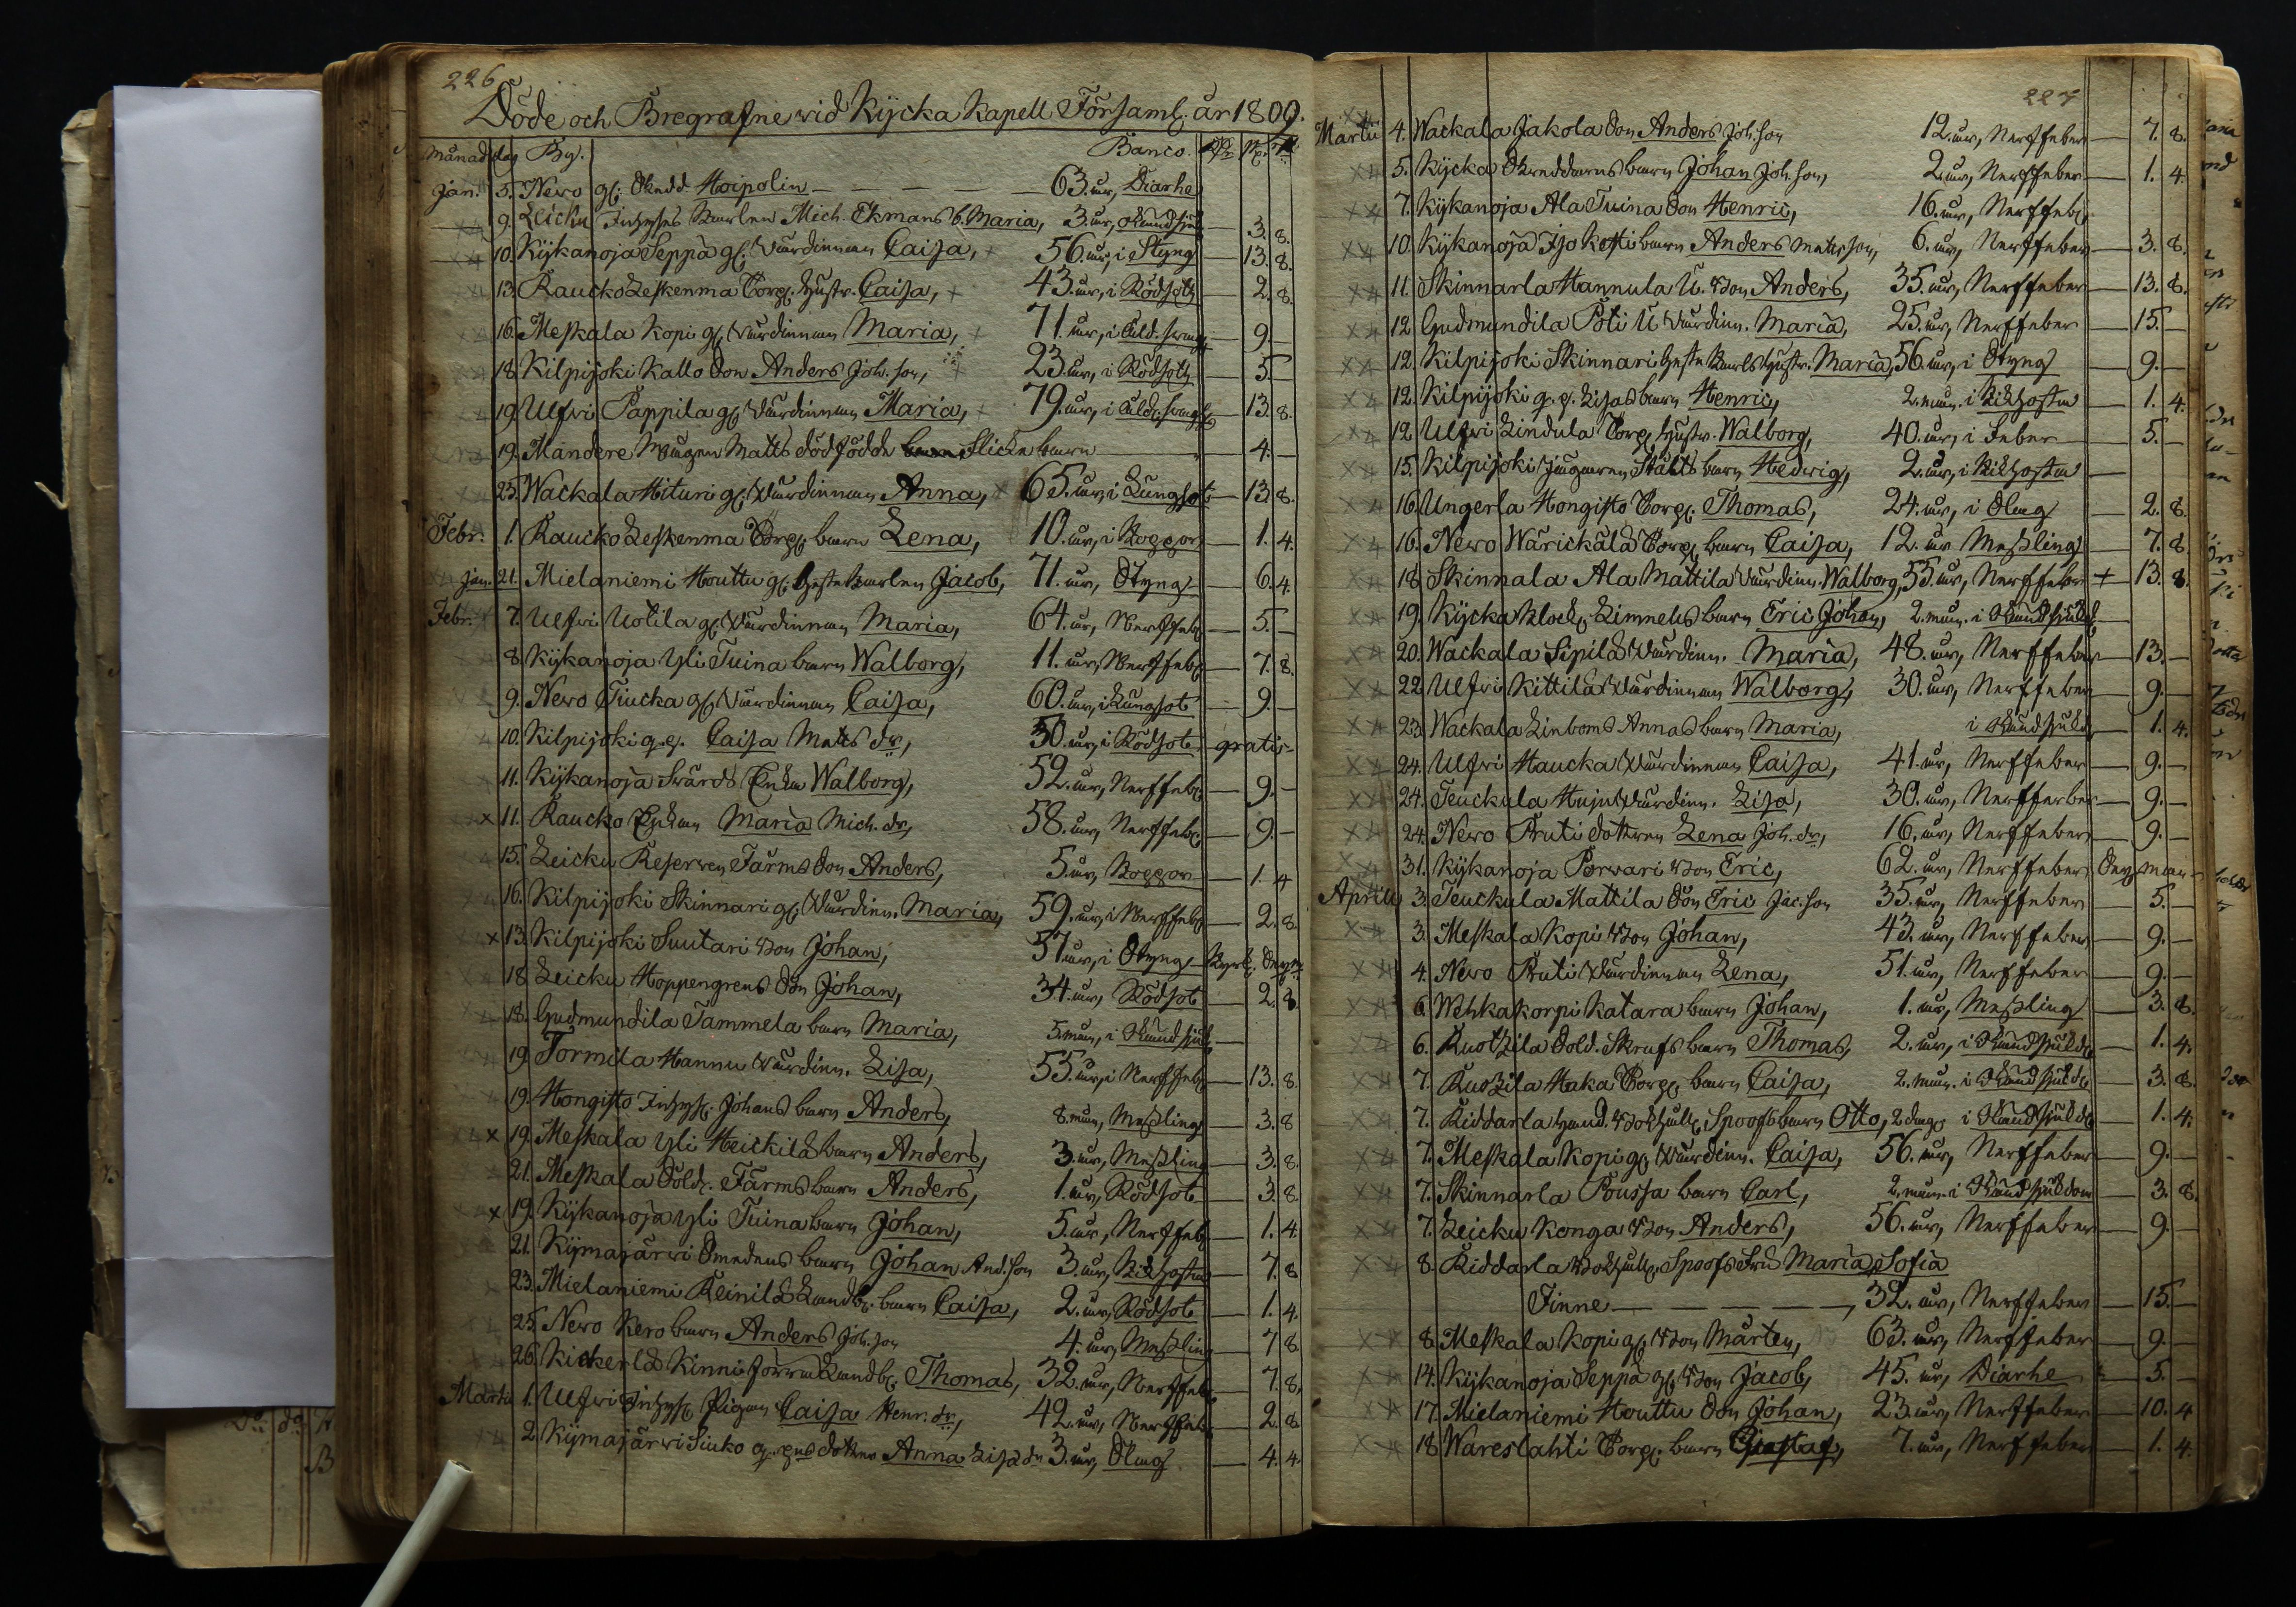 226
Döde och Begrafne wid Kycka Kapell Församl. år 1809.
Månad dag By. Banco. Rd
Jan. 5. Nero gl. Skredd. Hoipolin 63. år, Diarhe
9. Leicku Inhyses Karlen Mich. Ekmans b. Maria, 3. år, okänd sjuk 3. 8.
10. Kykanoja Seppä gl. Wärdinnan Caisa, 56. år, i Styng 13. 8.
13. Raucko Leskenma Torp. hustr. Caisa, 43. år, i Rödsoth 2. 8.
16. Meskala Kopi gl. Wärdinnan Maria, 71. år, i Åld. swagh 9. –
18. Kilpijoki Kallo Son Anders Joh. son, 23. år, i Rödsoth 5. –
19. Ulfvi Pappila gl. Wärdinnan Maria, 79. år, i Åld. swagh 13. 8.
19. Mandere Mågen Matts dödfödde Flicke barn 4. –
25. Wackala Hituri gl. Wärdinnan Anna, 65. år, i Lungsot 13. 8.
Febr. 1. Raucko Leskenma Torp. barn Lena, 10. år, i Koppor 1. 4.
Jan. 21. Mielaniemi Houttu gl. Gästekarlen Jacob, 71. år, Styng 6. 4.
Febr. 7. Ulfvi Uotila gl. Wärdinnan Maria, 64. år, Nerffeb. 5. –
8. Kykanoja Yli Tuina barn Walborg, 11. år, Nerffeb. 7. 8.
9. Nero Tiucka gl. Wärdinnan Caisa, 60. år, i Lungsot 9. –
10. Kilpijoki q. p. Caisa Matts dr, 30. år, i Rödsot gratis
11. Kykanoja Svärds Enka Walborg, 52. år, Nerffeb. 9. –
x 11. Raucko Enkan Maria Mich. dr, 58. år, Nerffeb. 9. –
15. Leicku Reserven Färms Son Anders, 5. år, Koppor 1. 4
16. Kilpijoki Skinnari gl. Wärdinn. Maria, 59. år, i Nerffeb. 2. 8
x 13. Kilpijoki Suutari Wden Johan, 57 år, i Styng
18. Leicku Hoppengrens Son Johan, 34. år, Rödsot 2. 8
18. Gudmundila Tammela barn Maria, 5. mån, i okänd sjuk
19. Tormila Hannu Wärdinn. Lisa, 55. år, i Nerffeb. 13. 8.
19. Hongisto Inhys. Johans barn Anders, 8. mån, Mesling 3. 8
x 19. Meskala Yli Heickilä barn Anders, 3. år, Mesling 3. 8.
21. Meskala Sold. Färms barn Anders, 1. år, Rödsot 3. 8.
x 19. Kykanoja Yli Tuina barn Johan, 5. år, Nerffeb. 1. 4.
21. Kymajärwi Smedens barn Johan And. son 3. år, Kikhosta 7. 8
23. Mielaniemi Reinilä Landb. barn Caisa, 2. år, Rödsot 1. 4.
25. Nero Kero barn Anders Joh. son 4. år, Mesling 7 8
26. Kickerlä Kinni Landb. Thomas, 32. år, Nerffeb. 7. 8.
Martii 1. Ulfvi Inhys. Pigan Caisa Henr. dr, 42. år, Nerffeb. 2. 8
2. Kymajärwi Siuko dotter Anna Lisa dr 3. år, Slag 4. 4.
227
Martii 4. Wackala Jakola Son Anders Joh. son 12. år, Nerffeber 7. 8.
5. Kycka Skreddarns barn Johan Joh. son, 2. år, Nerffeber 1. 4.
7. Kykanoja Ala Tuina Son Henric, 16. år, Nerffeb.
10. Kykanoja Iso Kotti barn Anders Matts son, 6. år, Nerffeber 3. 8.
11. Skinnarla Hannula U. Wden Anders, 35. år, Nerffeber 13. 8.
12. Gudmundila Poti U Wärdinn. Maria, 25. år, Nerffeber 15. –
12. Kilpijoki Skinnari Gästekarls hustr. Maria, 56. år, i Styng 9. –
12. Kilpijoki q. p. Lisas barn Henric, 2. mån. i Kikhosta 1. 4.
12. Ulfvi Lindula Torp. hustr. Walborg, 40. år, i Feber 5. –
15. Kilpijoki Jägaren Ståhls barn Hedwig, 2. år, i Kikhosta
16. Ungerla Hongisto Torp. Thomas, 24. år, i Slag 2. 8.
16. Nero Warickala Torp. barn Caisa, 12. år Mesling 7. 8.
18. Skinnala Ala Mattila Wärdinn. Walborg, 55. år, Nerffeber + 13. 8.
19. Kycka Klock. Limnells barn Eric Johan, 2. mån. i okänd sjukd.
20. Wackala Sipilä Wärdinn. Maria, 48. år, Nerffeber 13. –
22. Ulfvi Kittilä Wärdinnan Walborg, 30. år, Nerffeber 9. –
23. Wackala Linboms Annas barn Maria, i okänd sjukd. 1. 4.
24. Ulfvi Haucka Wärdinnan Caisa, 41. år, Nerffeber 9. –
24. Teuckula Huju Wärdinn. Lisa, 30. år, Nerfferber 9. –
24. Nero Pruti dottren Lena Joh. dr, 16. år, Nerffeber 9. –
31. Kykanoja Porwari Wden Eric, 62. år, Nerffeber
Aprill 3. Teuckula Mattila Son Eric Jac. son 35. år, Nerffeber 5. –
3. Meskala Kopi Wden Johan, 43. år, Nerffeber 9. –
4. Nero Pruti Wärdinnan Lena, 51. år, Nerffeber 9. –
6. Wehkakorpi Katara barn Johan, 1. år, Mesling 3. 8.
6. Ruotzila Sold. Skrufs barn Thomas, 2. år, i okänd sjukd. 1. 4.
7. Ruotzila Haka Torp. barn Caisa, 2. mån. i okänd sjukd. 3. 8.
7. Kiddarla Spoofs barn Otto, 2 dagr i okänd sjukd. 1. 4.
7. Meskala Kopi gl. Wärdinn. Caisa, 56. år, Nerffeber 9. –
7. Skinnarla Poussa barn Carl, 2. mån. i okänd sjukdom 3. 8.
7. Leicku Konga Wden Anders, 56. år, Nerffeber 9. –
8. Kiddarla Spoofs Fru Maria Sofia
Finne 32. år, Nerffeber 15. –
8. Meskala Kopi gl. Wden Mårten, 63. år, Nerffeber 9. –
14. Kykanoja Seppä gl. Wden Jacob, 45. år, Diarhe 5. –
17. Mielaniemi Houttu Son Johan, 23. år, Nerffeber 10. 4
18. Wareslahti Torp. barn Gustaf, 7. år, Nerffeber 1. 4.